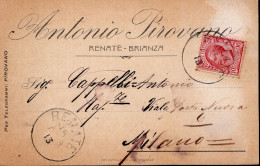 Antonio Pirovano
RENATE-BRIANZA
Per Telegrammi: PIROVANO
Sig. Cappelletti Antonio
Rag.
Viale Porta Nuova
6
Milano
RENATE
13
13